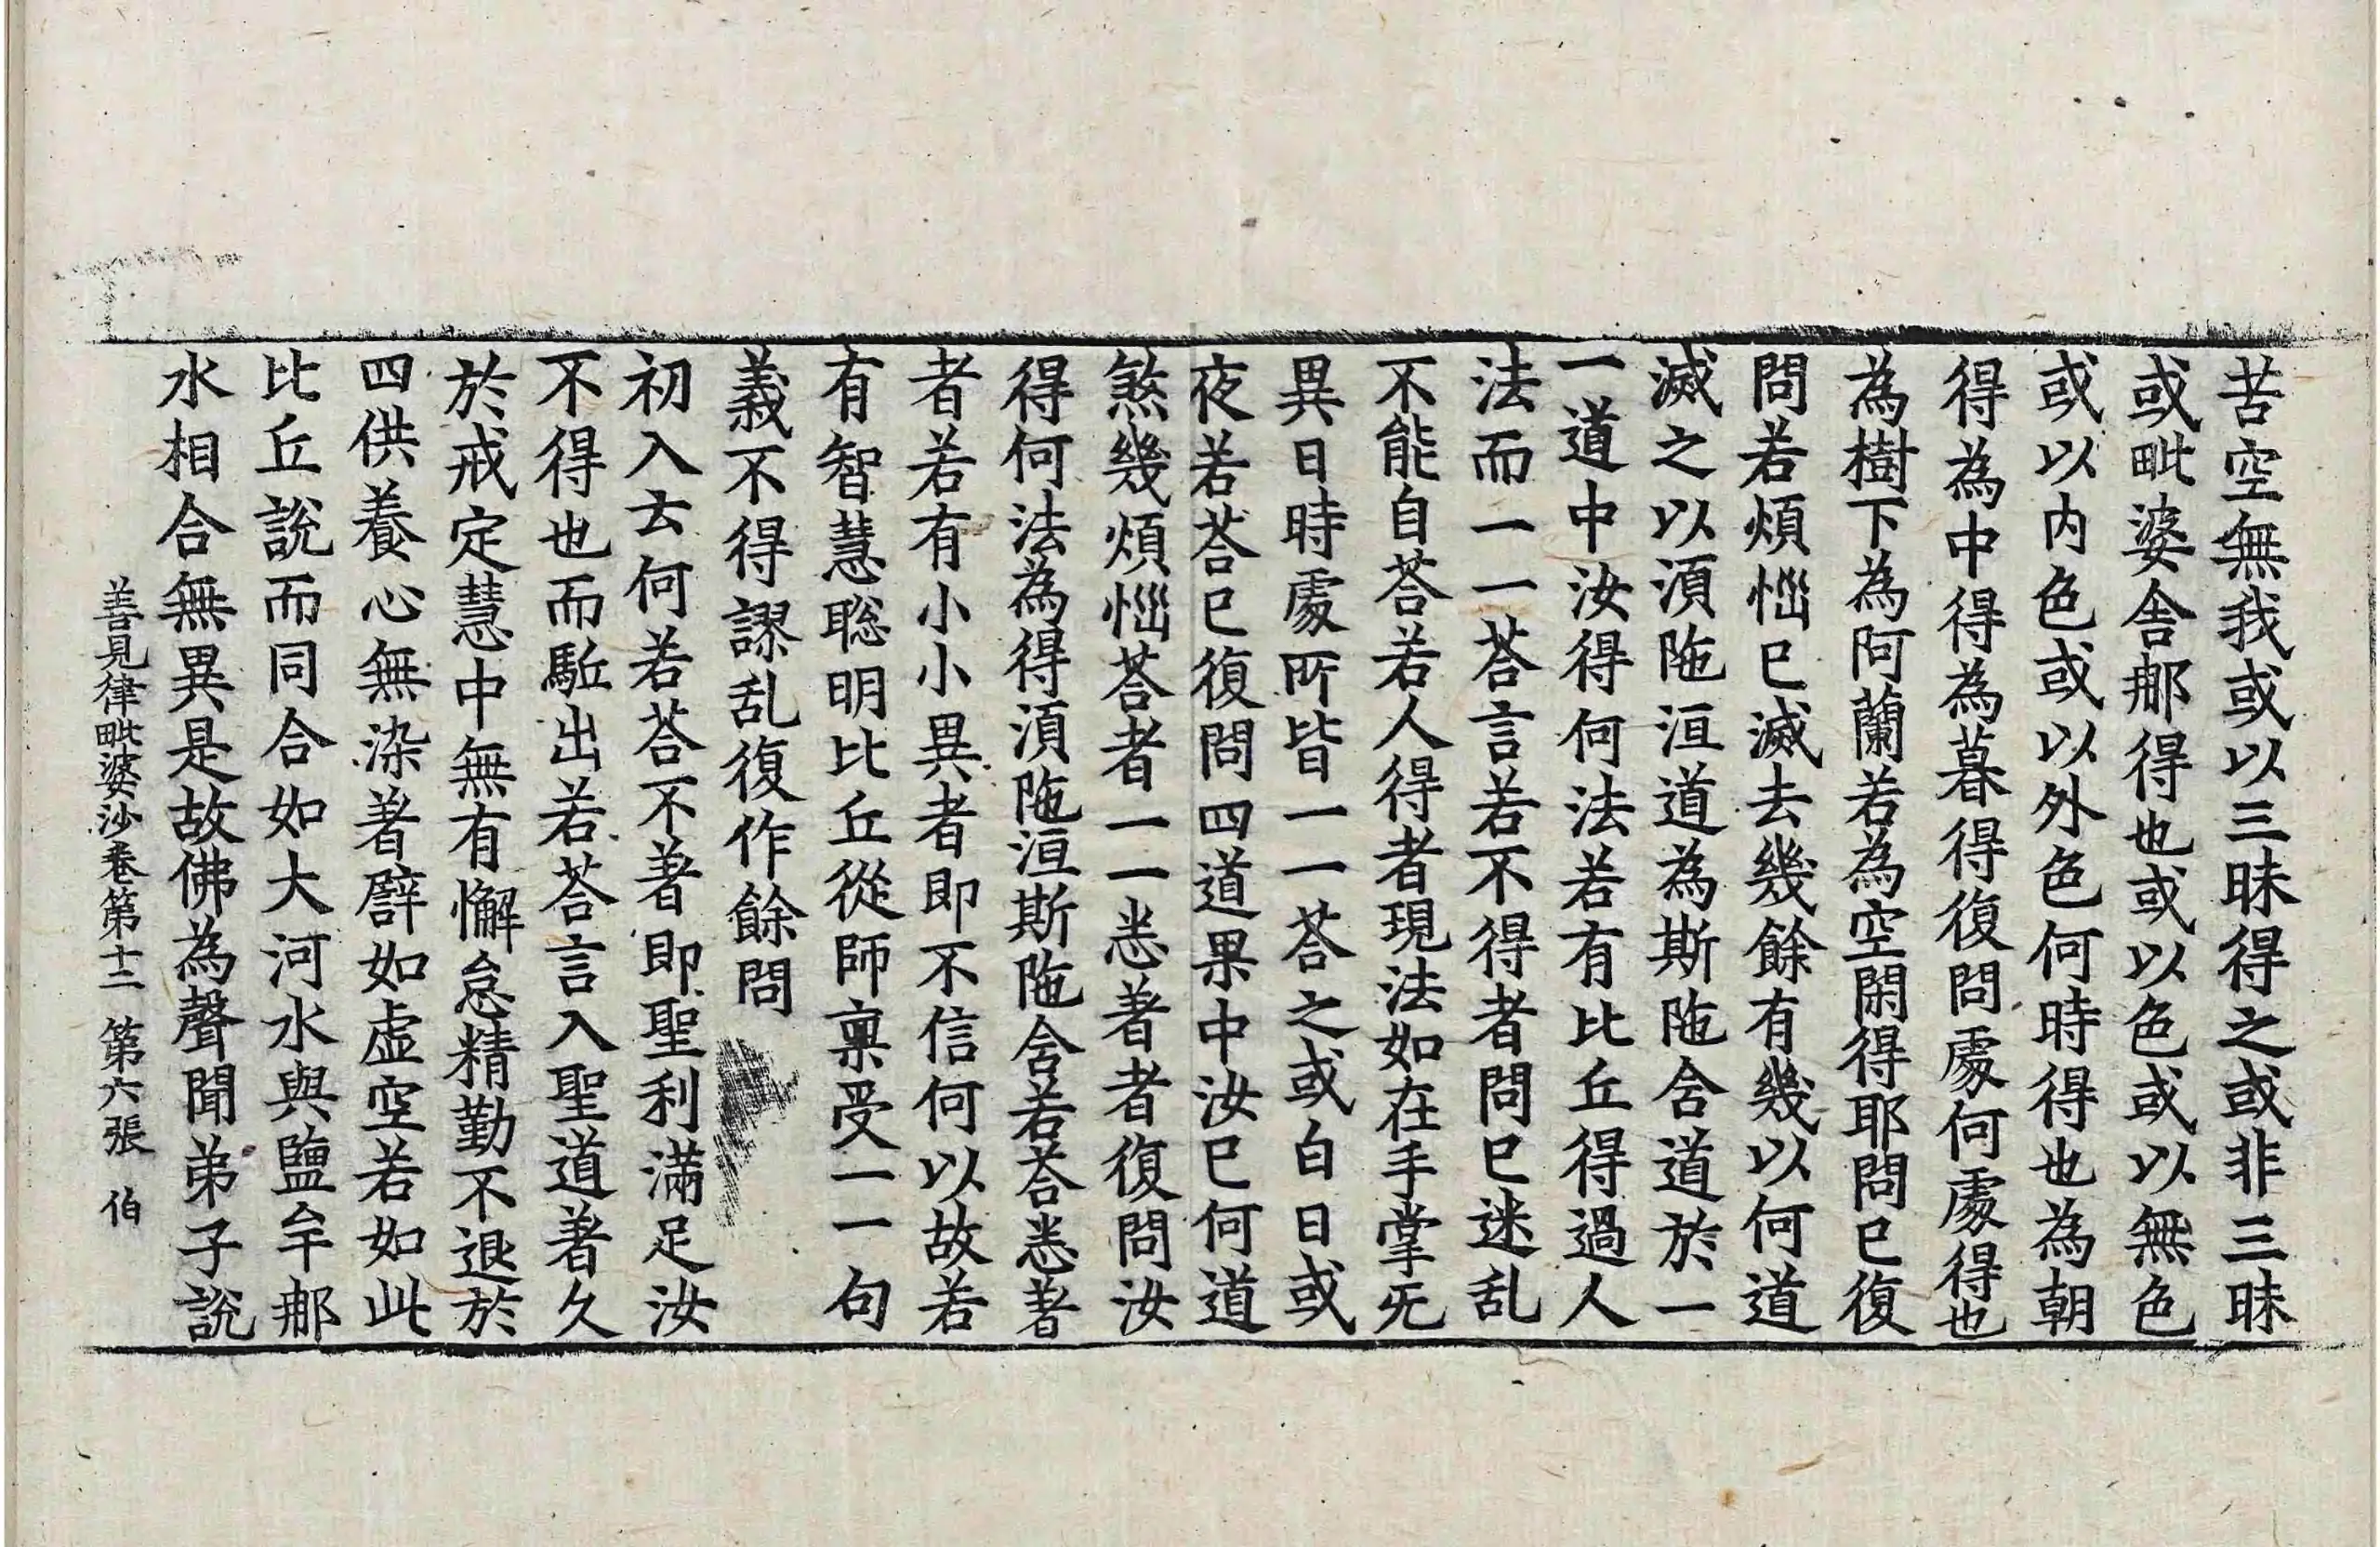 苦空無我或以三昧得之或非三昧
或毗婆舍那得也或以色或以無色
或以内色或以外色何時得也為朝
得為中得為暮得復問處何處得也
為樹下為阿蘭若為空閑得耶問已復
問若煩惱已滅去幾餘有幾以何道
滅之以湏陁洹道為斯陁含道於一
一道中汝得何法若有比丘得過人
法而一一荅言若不得者問已迷乱
不能自荅若人得者現法如在手掌无
異日時處所皆一一荅之或白日或
夜若荅已復問四道果中汝已何道
煞幾煩惱荅者一一悉著者復問汝
得何法為得湏陁洹斯陁含若荅悉著
者若有小小異者即不信何以故若
有智慧聡明比丘從師禀受一一句
義不得謬乱復作餘問
初入去何若荅不著即聖利滿足汝
不得也而駈出若荅言入聖道著久
於戒定慧中無有懈怠精勤不退於
四供養心無染著譬如虛空若如此
比丘說而同合如大河水與鹽牟那
水相合無異是故佛為聲聞弟子說
善見律毗婆沙卷第十二 第六張 伯